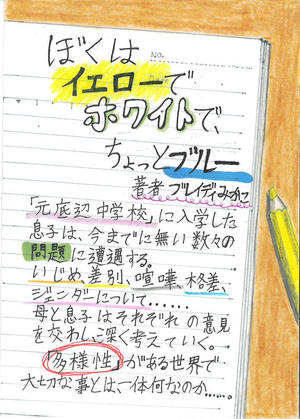 No.
ぼくは
イエローで
ホワイトで、
ちょっとブルー
著者 ブレイディみかこ
「元底辺中学校」に入学した
息子は、今までに無い数々の
問題に遭遇する。
いじめ、差別、喧嘩、格差、
ジェンダーについて......
母と息子はそれぞれの意見
を交わし、深く考えていく。
「多様性」がある世界で
大切な事とは、一体何なのか......